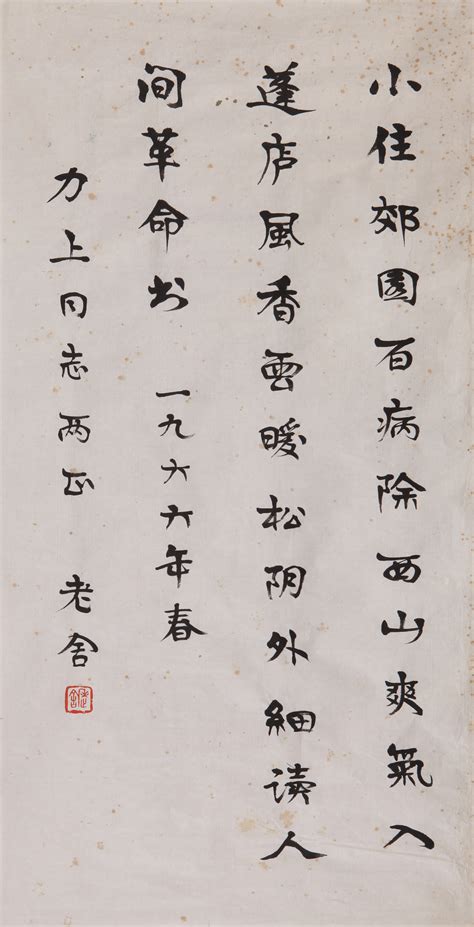 小住郊园百病除西山爽氣入
蓬店風香雲暖松阴外细读人
间革命书 一九六六年春
力上同志两正 老舍
老舍